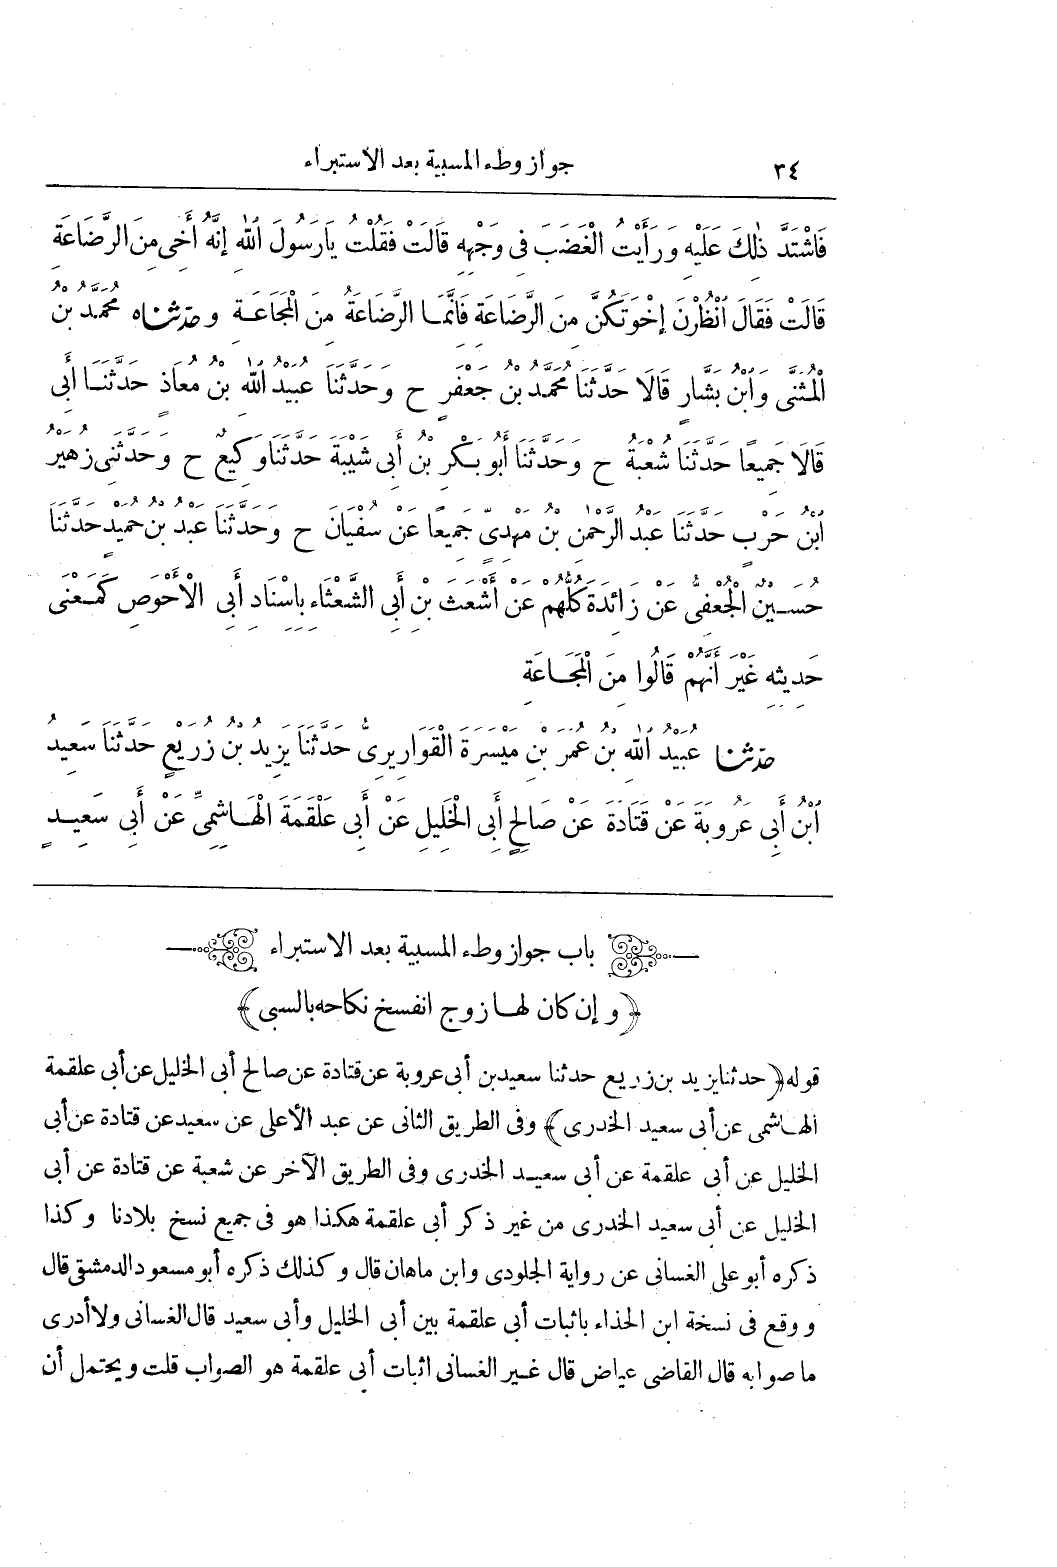 ٣٤ جواز وطء المسبية بعد الاستبراء
فَاشْتَدَّ ذٰلِكَ عَلَيْهِ وَرَأَيْتُ الْغَضَبَ فِى وَجْهِهِ قَالَتْ فَقُلْتُ يَارَسُولَ اللهِ إِنَّهُ أَخِى مِنَ الرَّضَاعَةِ
قَالَتْ فَقَالَ انْظُرْنَ إِخْوَتَكُنَّ مِنَ الرَّضَاعَةِ فَإِنَّمَا الرَّضَاعَةُ مِنَ الْمَجَاعَةِ وحدثناه مُحَمَّدُ بْنُ
الْمُثَنَّى وَابْنُ بَشَّارٍ قَالَا حَدَّثَنَا مُحَمَّدُ بْنُ جَعْفَرٍ ح وَحَدَّثَنَا عُبَيْدُ اللهِ بْنُ مُعَاذٍ حَدَّثَنَا أَبِى
قَالَا جَمِيعًا حَدَّثَنَا شُعْبَةُ ح وَحَدَّثَنَا أَبُو بَكْرِ بْنُ أَبِى شَيْبَةَ حَدَّثَنَا وَكِيعٌ ح وَحَدَّثَنِى زُهَيْرُ
ابْنُ حَرْبٍ حَدَّثَنَا عَبْدُ الرَّحْمٰنِ بْنُ مَهْدِىٍّ جَمِيعًا عَنْ سُفْيَانَ ح وَحَدَّثَنَا عَبْدُ بْنُ حُمَيْدٍ حَدَّثَنَا
حُسَيْنٌ الْجُعْفِىُّ عَنْ زَائِدَةَ كُلُّهُمْ عَنْ أَشْعَثَ بْنِ أَبِى الشَّعْثَاءِ بِإِسْنَادِ أَبِى الْأَحْوَصِ كَمَعْنَى
حَدِيثِهِ غَيْرَ أَنَّهُمْ قَالُوا مِنَ الْمَجَاعَةِ
حدثنا عُبَيْدُ اللهِ بْنُ عُمَرَ بْنِ مَيْسَرَةَ الْقَوَارِيرِىُّ حَدَّثَنَا يَزِيدُ بْنُ زُرَيْعٍ حَدَّثَنَا سَعِيدُ
ابْنُ أَبِى عَرُوبَةَ عَنْ قَتَادَةَ عَنْ صَالِحٍ أَبِى الْخَلِيلِ عَنْ أَبِى عَلْقَمَةَ الْهَاشِمِىِّ عَنْ أَبِى سَعِيدٍ
باب جواز وطء المسبية بعد الاستبراء
﴿وإن كان لها زوج انفسخ نكاحه بالسبى﴾
قوله ﴿حدثنا يزيد بن زريع حدثنا سعيد بن أبى عروبة عن قتادة عن صالح أبى الخليل عن أبى علقمة
الهاشمى عن أبى سعيد الخدرى﴾ وفى الطريق الثانى عن عبد الأعلى عن سعيد عن قتادة عن أبى
الخليل عن أبى علقمة عن أبى سعيد الخدرى وفى الطريق الآخر عن شعبة عن قتادة عن أبى
الخليل عن أبى سعيد الخدرى من غير ذكر أبى علقمة هكذا هو فى جميع نسخ بلادنا وكذا
ذكره أبو على الغسانى عن رواية الجلودى وابن ماهان قال وكذلك ذكره أبو مسعود الدمشقى قال
ووقع فى نسخة ابن الحذاء باثبات أبى علقمة بين أبى الخليل وأبى سعيد قال الغسانى ولا أدرى
ما صوابه قال القاضى عياض قال غير الغسانى اثبات أبى علقمة هو الصواب قلت ويحتمل أن